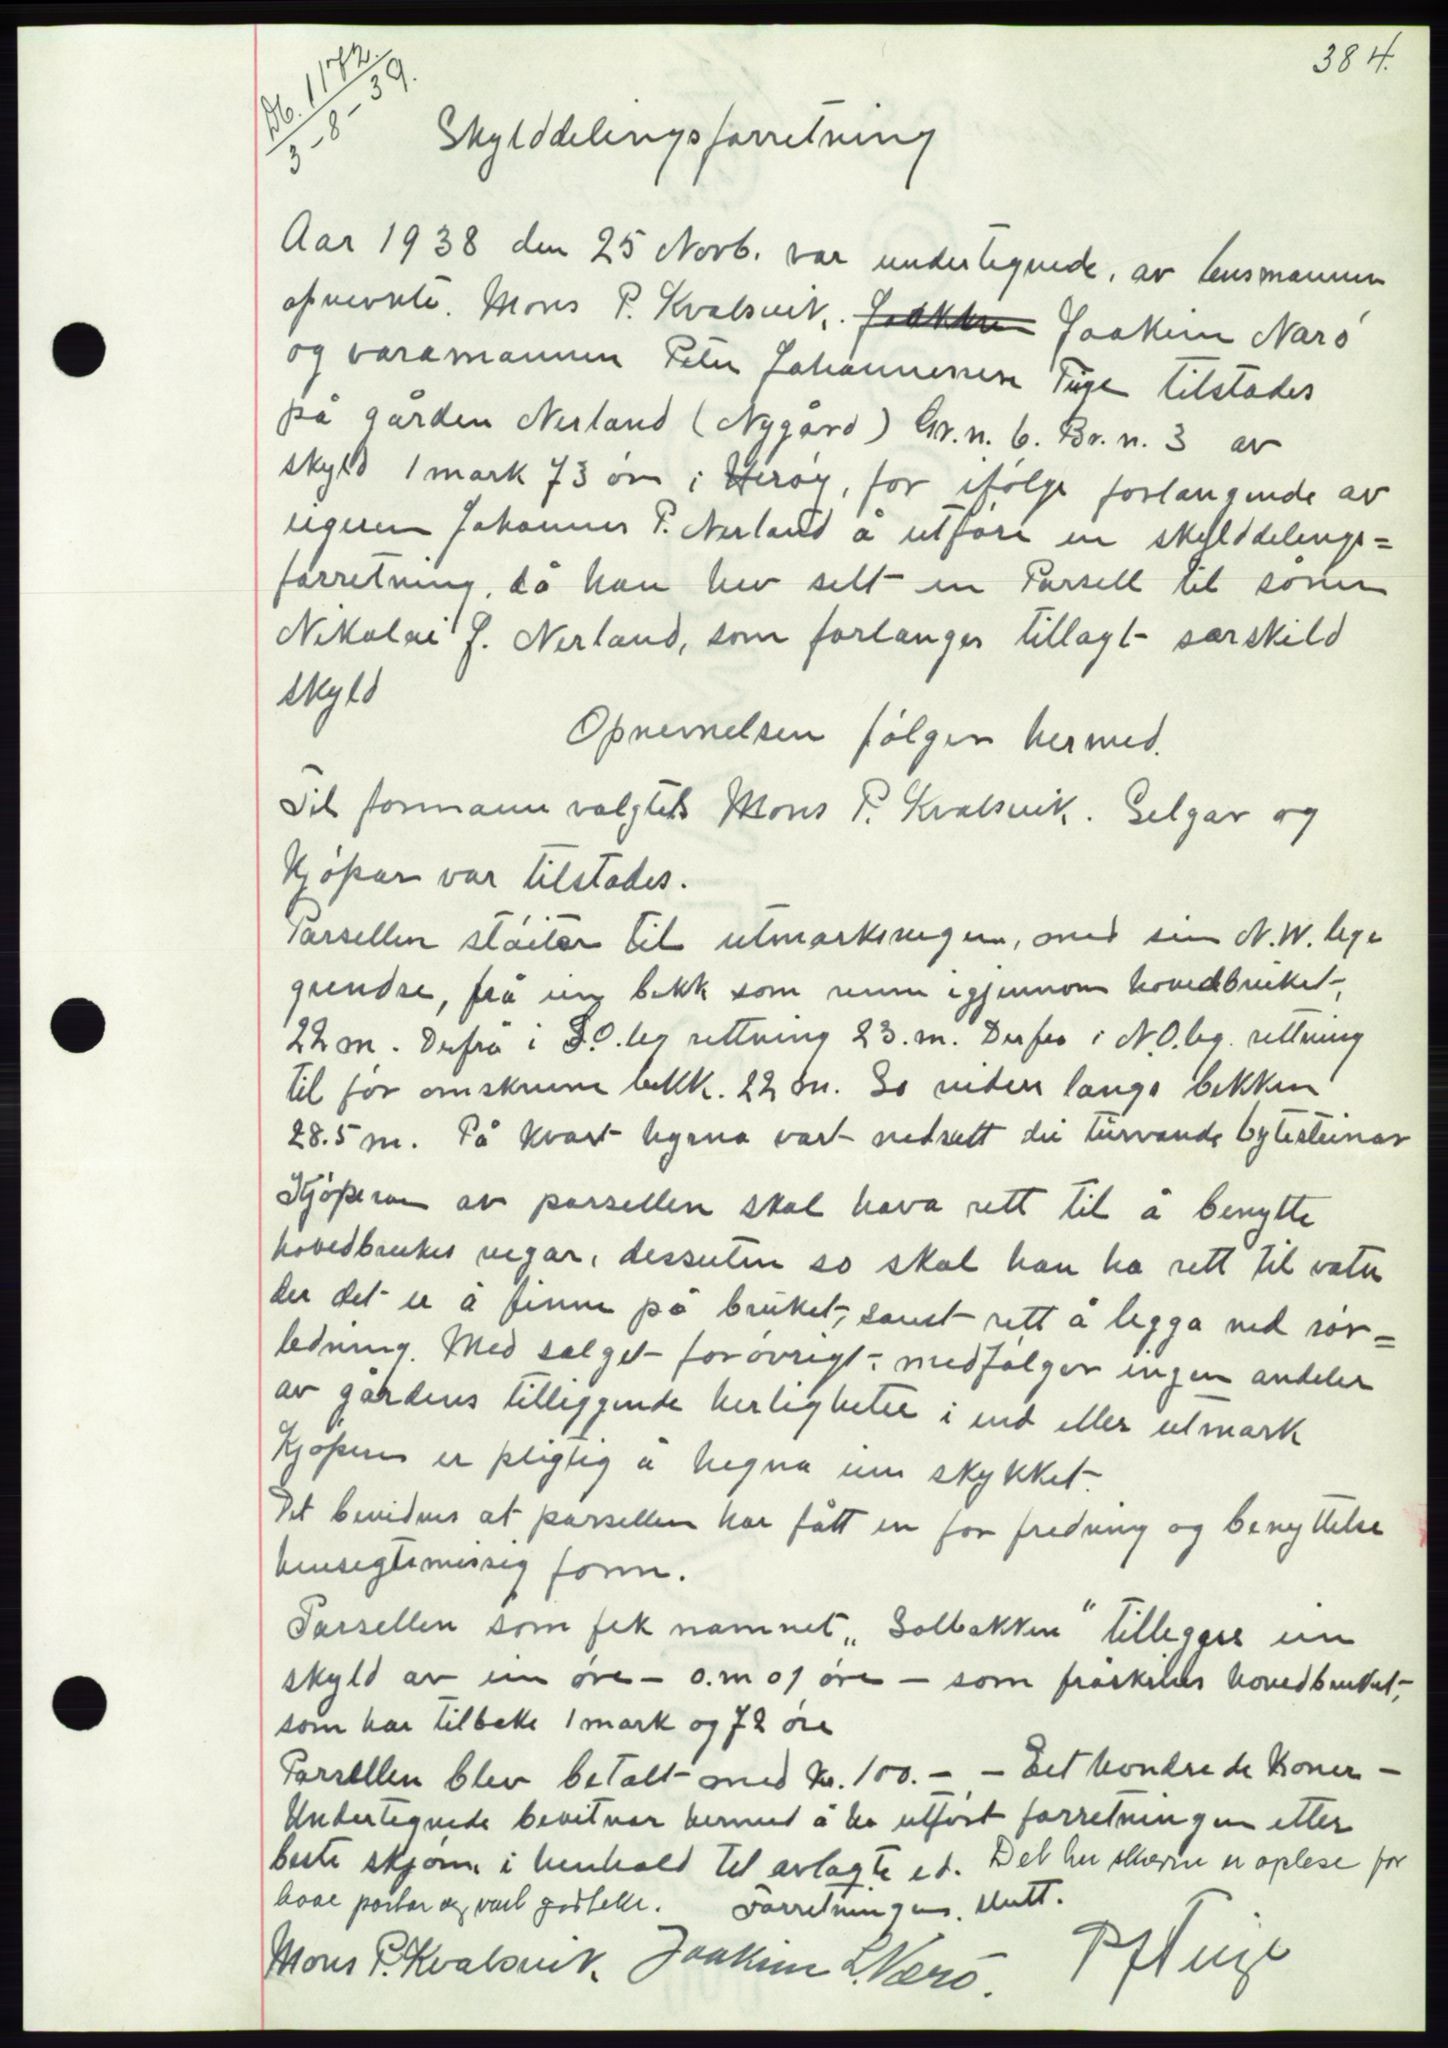 384.
Db. 1172.
3-8-39.
Skylddelingsforretning
Aar 1938 den 25 Novb. var undertegnede, av lensmannen
opnevnte. Mons P. Kvalsvik. Joakim Narö
og varamannen Peter Johannessen Tuge tilstades
på gården Nerland (Nygård) Gr.n. 6. Br.n. 3 av
skyld 1 mark 73 öre i Heröy, for ifölge forlangende av
eigeren Johannes P. Nerland å utföre en skylddelings=
forretning, då han hev selt en Parsell til sönen
Nikolai J. Nerland, som forlanges tillagt særskild
skyld
Opnevnelsen fölger hermed.
Til formann valgtes Mons P. Kvalsvik. Selgar og
Kjöpar var tilstades.
Parsellen stöiter til utmarksvegen, med sin N.W. lege
grendse, frå ein bekk som renn igjennom hovedbruket,
22 m. Derfrå i S.O. leg rettning 23. m. Derfra i N.O. leg. rettning
til för omskrevne bekk. 22 m. So videre langs bekken
28.5 m. På kvart hyrna vart nedsett dei turvande bytesteinar
Kjöperen av parsellen skal hava rett til å benytte
hovedbrukes vegar, dessuten so skal han ha rett til vatn
der det er å finne på bruket, samt rett å legga ned rör=
ledning. Med salget forövrigt, medfölger ingen andeler
av gårdens tilliggende herligheter i ind eller utmark
Kjöperen er pligtig å hegna inn stykket.
Det bevidnes at parsellen har fått en for fredning og benyttelse
hensegtsmessig form.
Parsellen som fek namnet „Solbakken" tillegges ein
skyld av ein öre - 0.m 01 öre - som fråskiles hovedbruket,
som har tilbake 1 mark og 72 öre
Parsellen blev betalt med kr. 100.- - Eet hondrede Kroner -
Undertegnede bevitnar hermed å ha utfört forretningen etter
beste skjönn i henhold til avlagte ed. Det her skrevne er oplese for
baae partar og vart godteke. Forretningen slutt.
Mons P. Kvalsvik. Joakim L. Nærö. P J Tuge